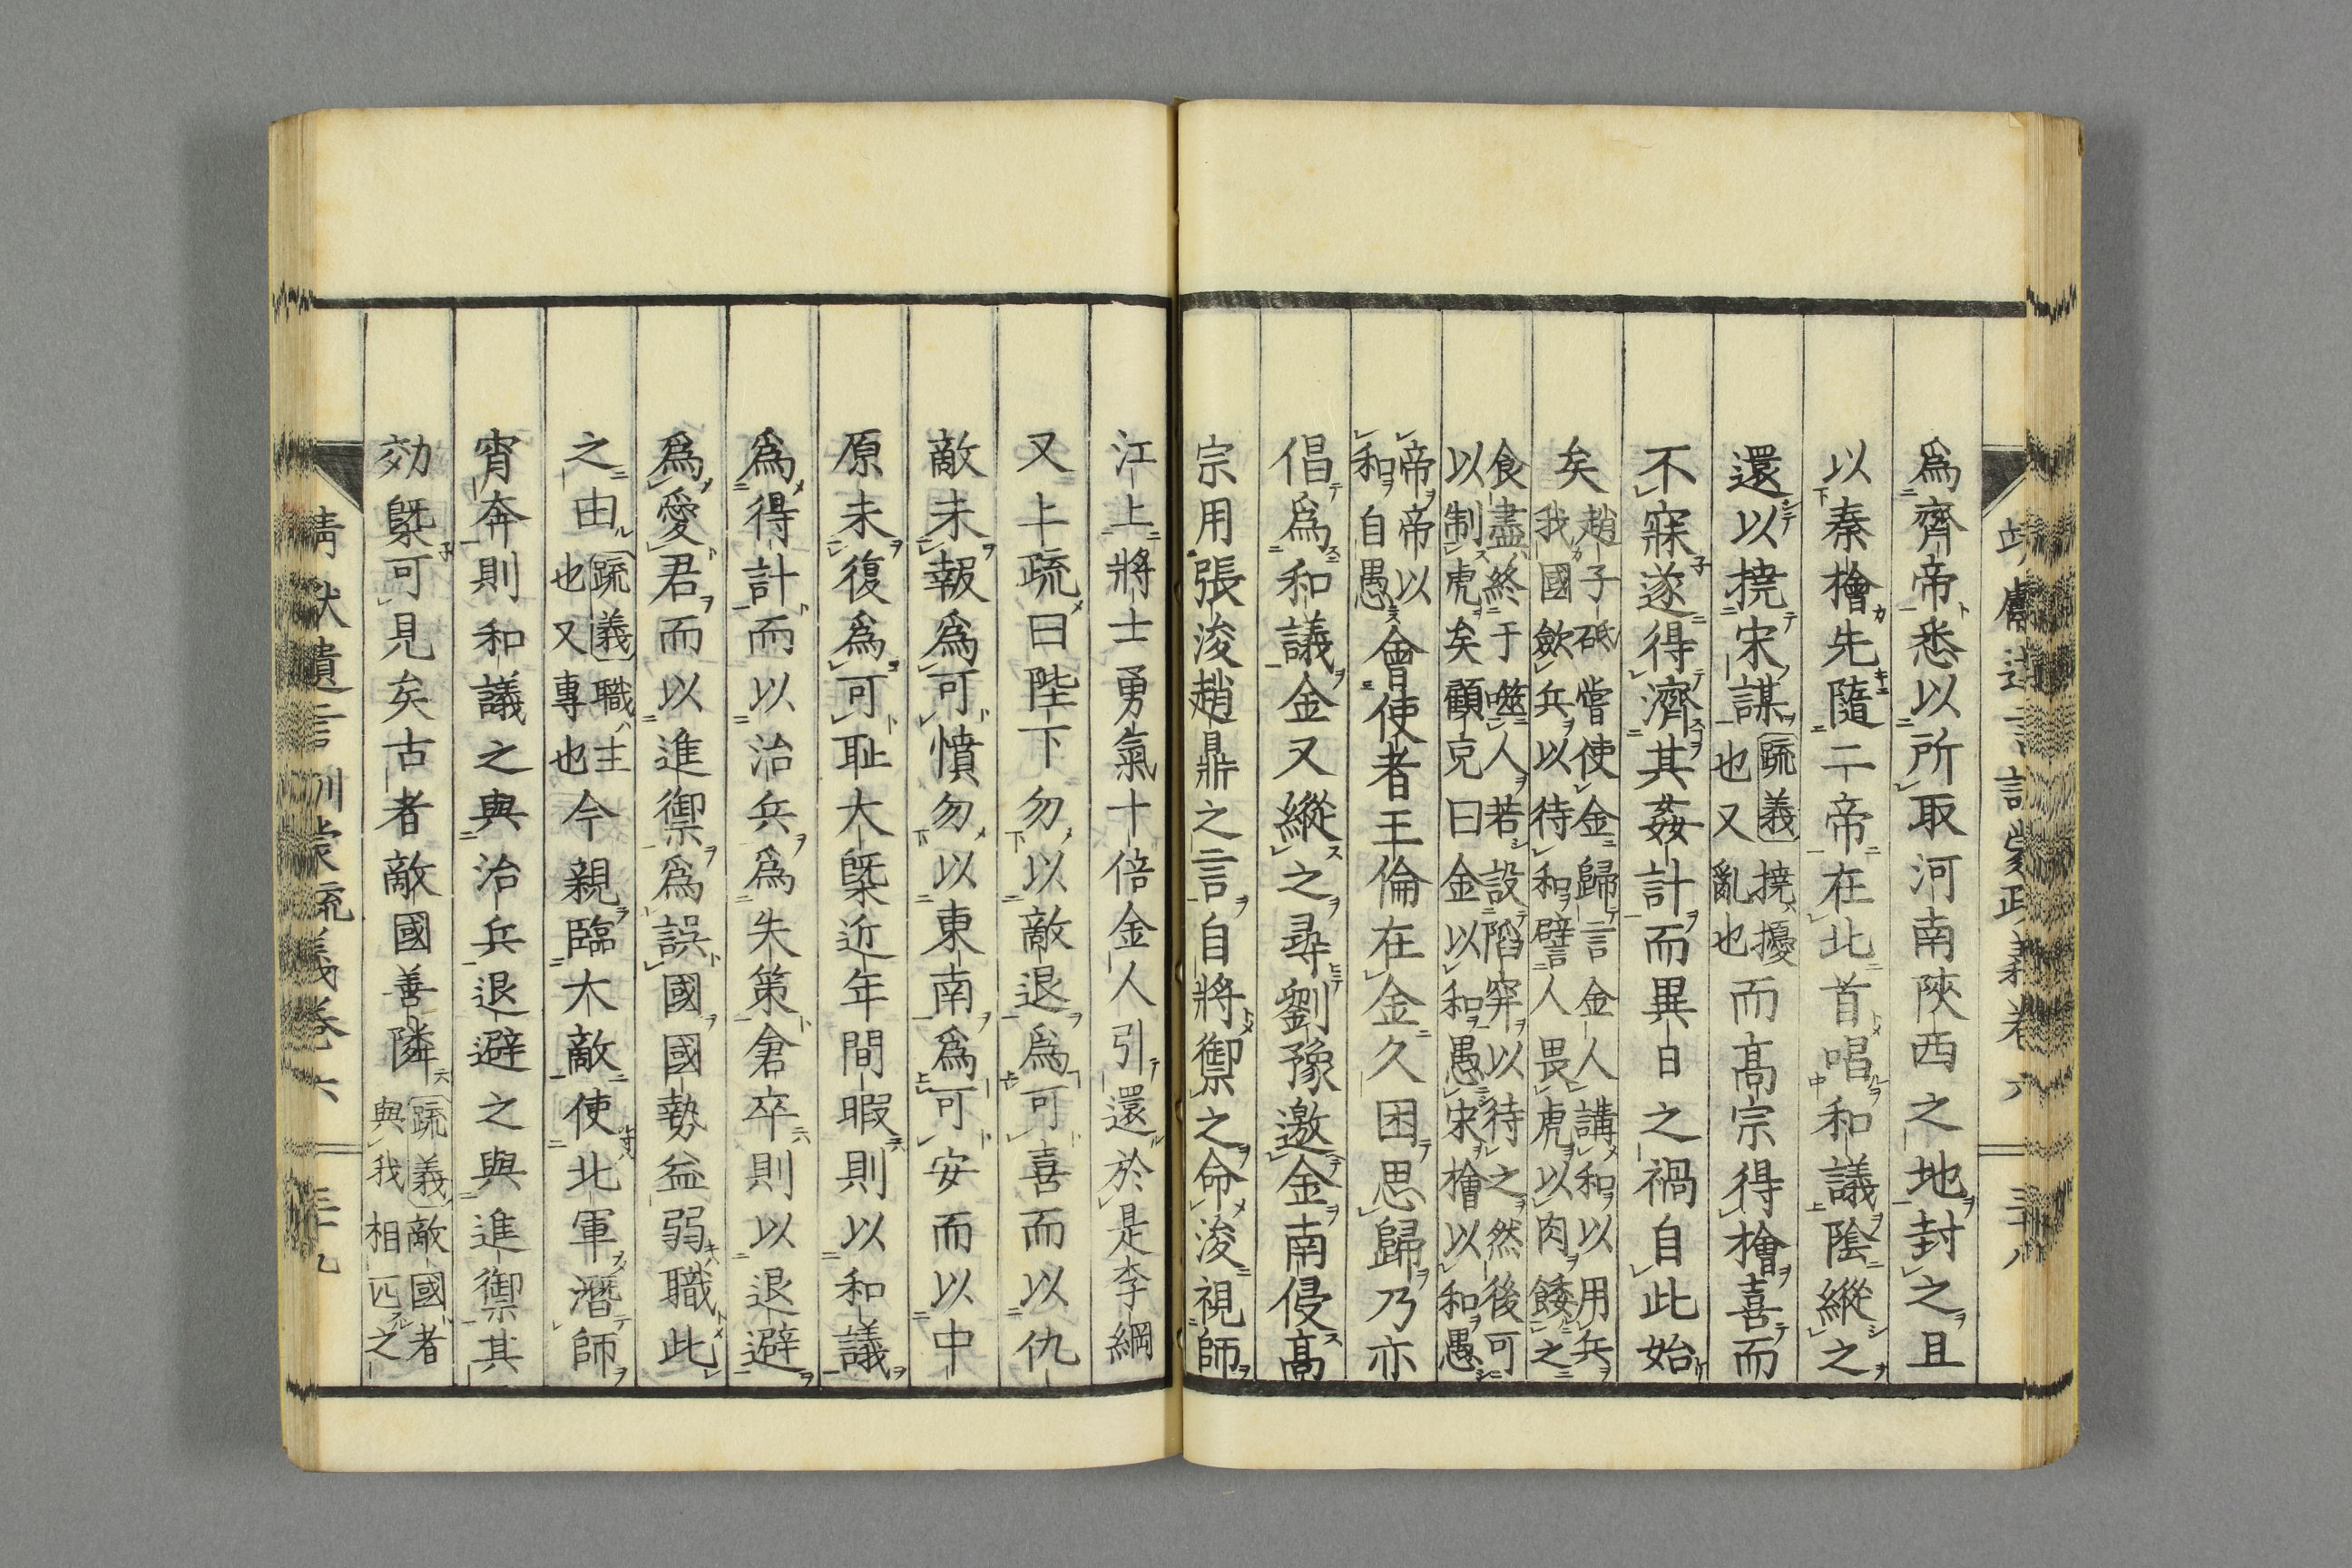 靖獻遺言訓蒙疏義卷六 三十八
爲齊帝悉以所取河南陝西之地封之且
以秦檜先隨二帝在北首唱和議陰縱之
還以撓宋謀〔疏義〕撓擾也又亂也而高宗得檜喜而
不寐遂得濟其姦計而異日之禍自此始
矣趙子砥嘗使金歸言金人講和以用兵
我國歛兵以待和譬人畏虎以肉餧之
食盡終于噬人若設陷穽以待之然後可
以制虎矣顧克曰金以和愚宋檜以和愚
帝帝以和自愚會使者王倫在金久困思歸乃亦
倡爲和議金又縱之尋劉豫邀金南侵高
宗用張浚趙鼎之言自將禦之命浚視師
江上將士勇氣十倍金人引還於是李綱
又上疏曰陛下勿以敵退爲可喜而以仇
敵未報爲可憤勿以東南爲可安而以中
原未復爲可耻大槩近年間暇則以和議
爲得計而以治兵爲失策倉卒則以退避
爲愛君而以進禦爲誤國國勢益弱職此
之由〔疏義〕職主也又專也今親臨大敵使北軍潛師
宵奔則和議之與治兵退避之與進禦其
効槩可見矣古者敵國善隣〔疏義〕敵國者與我相匹之
靖獻遺言訓蒙疏義卷六 三十九